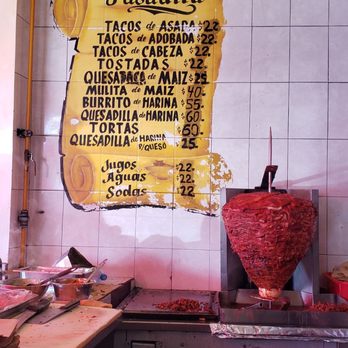 TACOS de ASADA $22.
TACOS de ADOBADA $22.
TACOS de CABEZA $22.
TOSTADAS $22.
QUESATACA de MAIZ $25
MULITA de MAIZ $40.
BURRITO de HARINA $55.
QUESADILLA de HARINA $60.
TORTAS $50.
QUESADILLA de HARINA P/QUESO $25.
Jugos $22.
Aguas $22.
Sodas $22.